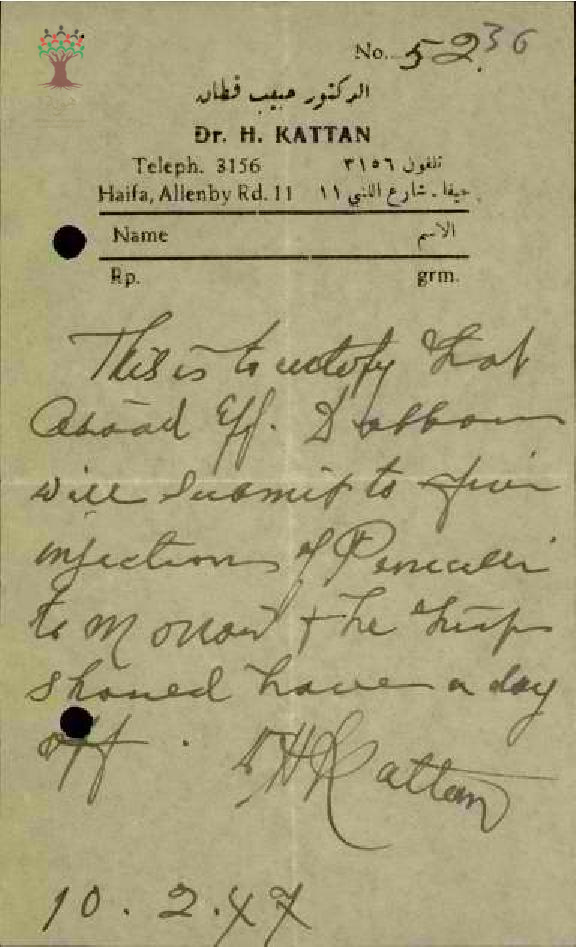 No. 5236
الدكتور حبيب قطان
Dr. H. KATTAN
Teleph. 3156 تلفون ٣١٥٦
Haifa, Allenby Rd. 11 حيفا ـ شارع اللنبي ١١
Name الاسم
Rp. grm.
This is to certify that
Assad Eff. Dabbour
will submit to four
injections of Penicillin
to morrow & he
should have a day
off. Dr H Kattan
10.2.47